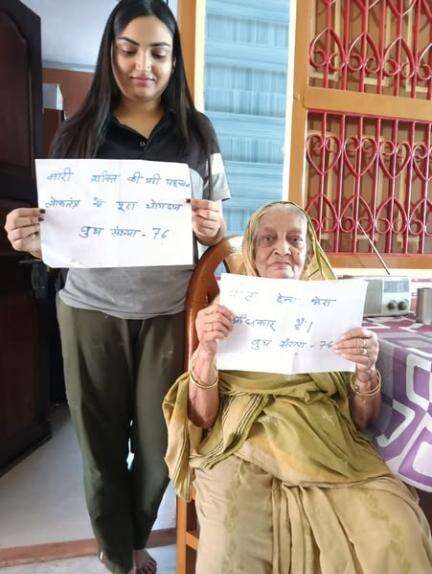 नारी शक्ति की भी पहचान
लोकतंत्र में पूरा योगदान
बुथ संख्या - 76
देना मेरा
अधिकार है।
बुथ संख्या - 76